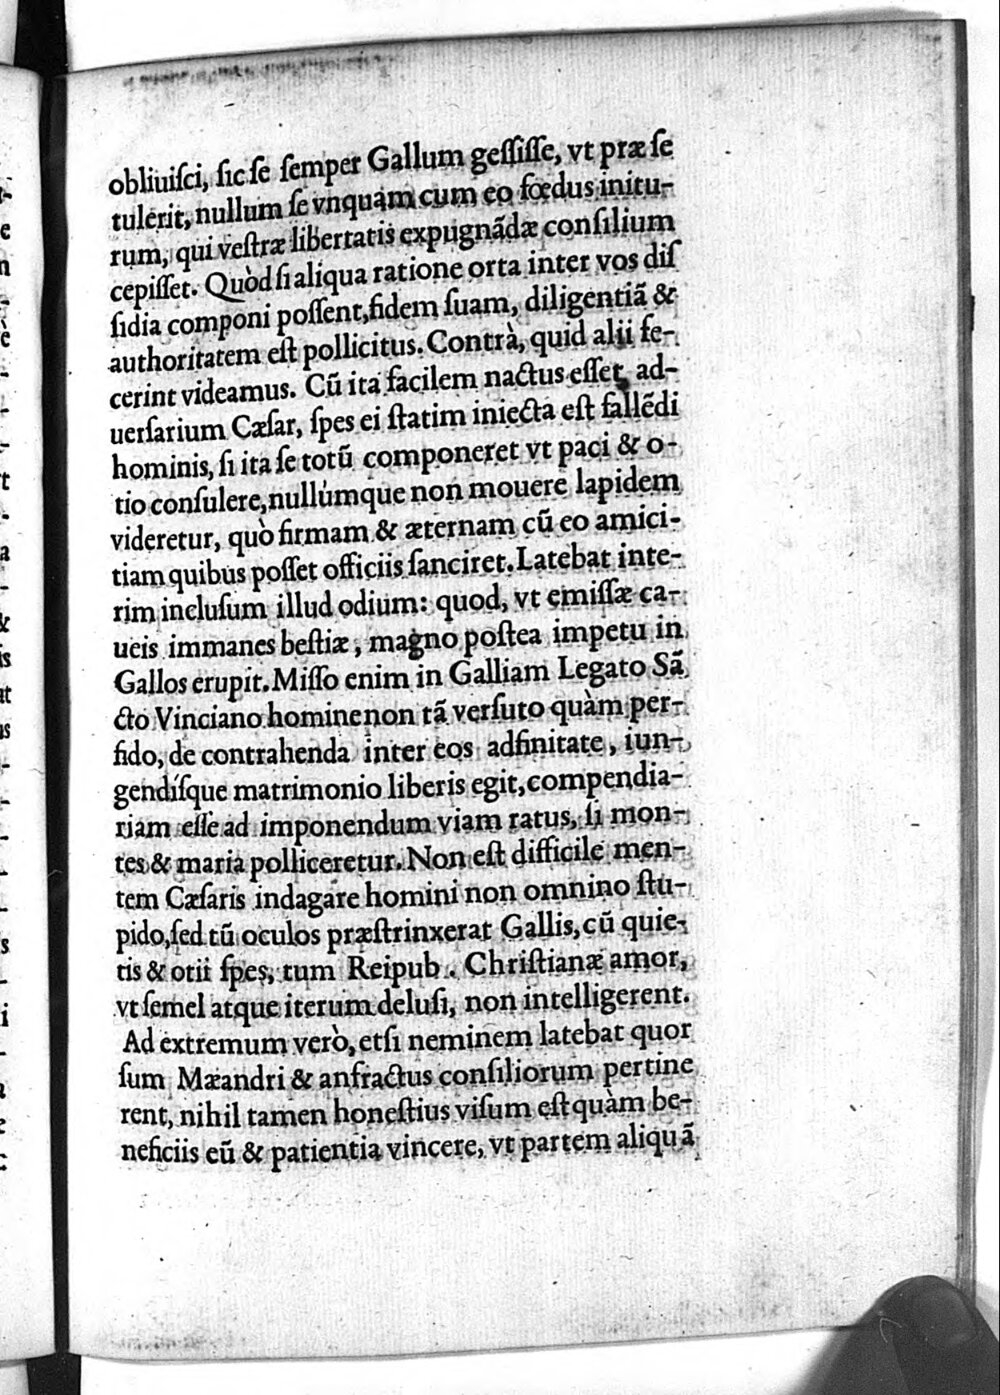 obliuiſci, ſic ſe ſemper Gallum geſſiſſe, vt præ ſe
tulerit, nullum ſe vnquam cum eo fœdus initu-
rum, qui veſtræ libertatis expugnãdæ conſilium
cepiſſet. Quòd ſi aliqua ratione orta inter vos diſ
ſidia componi poſſent, fidem ſuam, diligentiã &
authoritatem eſt pollicitus. Contrà, quid alij fe-
cerint videamus. Cũ ita facilem nactus eſſet ad-
uerſarium Cæſar, ſpes ei ſtatim iniecta eſt fallẽdi
hominis, ſi ita ſe totũ componeret vt paci & o-
tio conſulere, nullúmque non mouere lapidem
videretur, quò firmam & æternam cũ eo amici-
tiam quibus poſſet officiis ſanciret. Latebat inte-
rim incluſum illud odium: quod, vt emiſſæ ca-
ueis immanes beſtiæ, magno poſtea impetu in
Gallos erupit. Miſſo enim in Galliam Legato Sã
cto Vinciano homine non tã verſuto quàm per-
fido, de contrahenda inter eos adfinitate, iun-
gendíſque matrimonio liberis egit, compendia-
riam eſſe ad imponendum viam ratus, ſi mon-
tes & maria polliceretur. Non eſt difficile men-
tem Cæſaris indagare homini non omnino ſtu-
pido, ſed tũ oculos præſtrinxerat Gallis, cũ quie-
tis & otii ſpes, tum Reipub. Chriſtianæ amor,
vt ſemel atque iterum deluſi, non intelligerent.
Ad extremum verò, etſi neminem latebat quor
ſum Mæandri & anfractus conſiliorum pertine
rent, nihil tamen honeſtius viſum eſt quàm be-
neficiis eũ & patientia vincere, vt partem aliquã